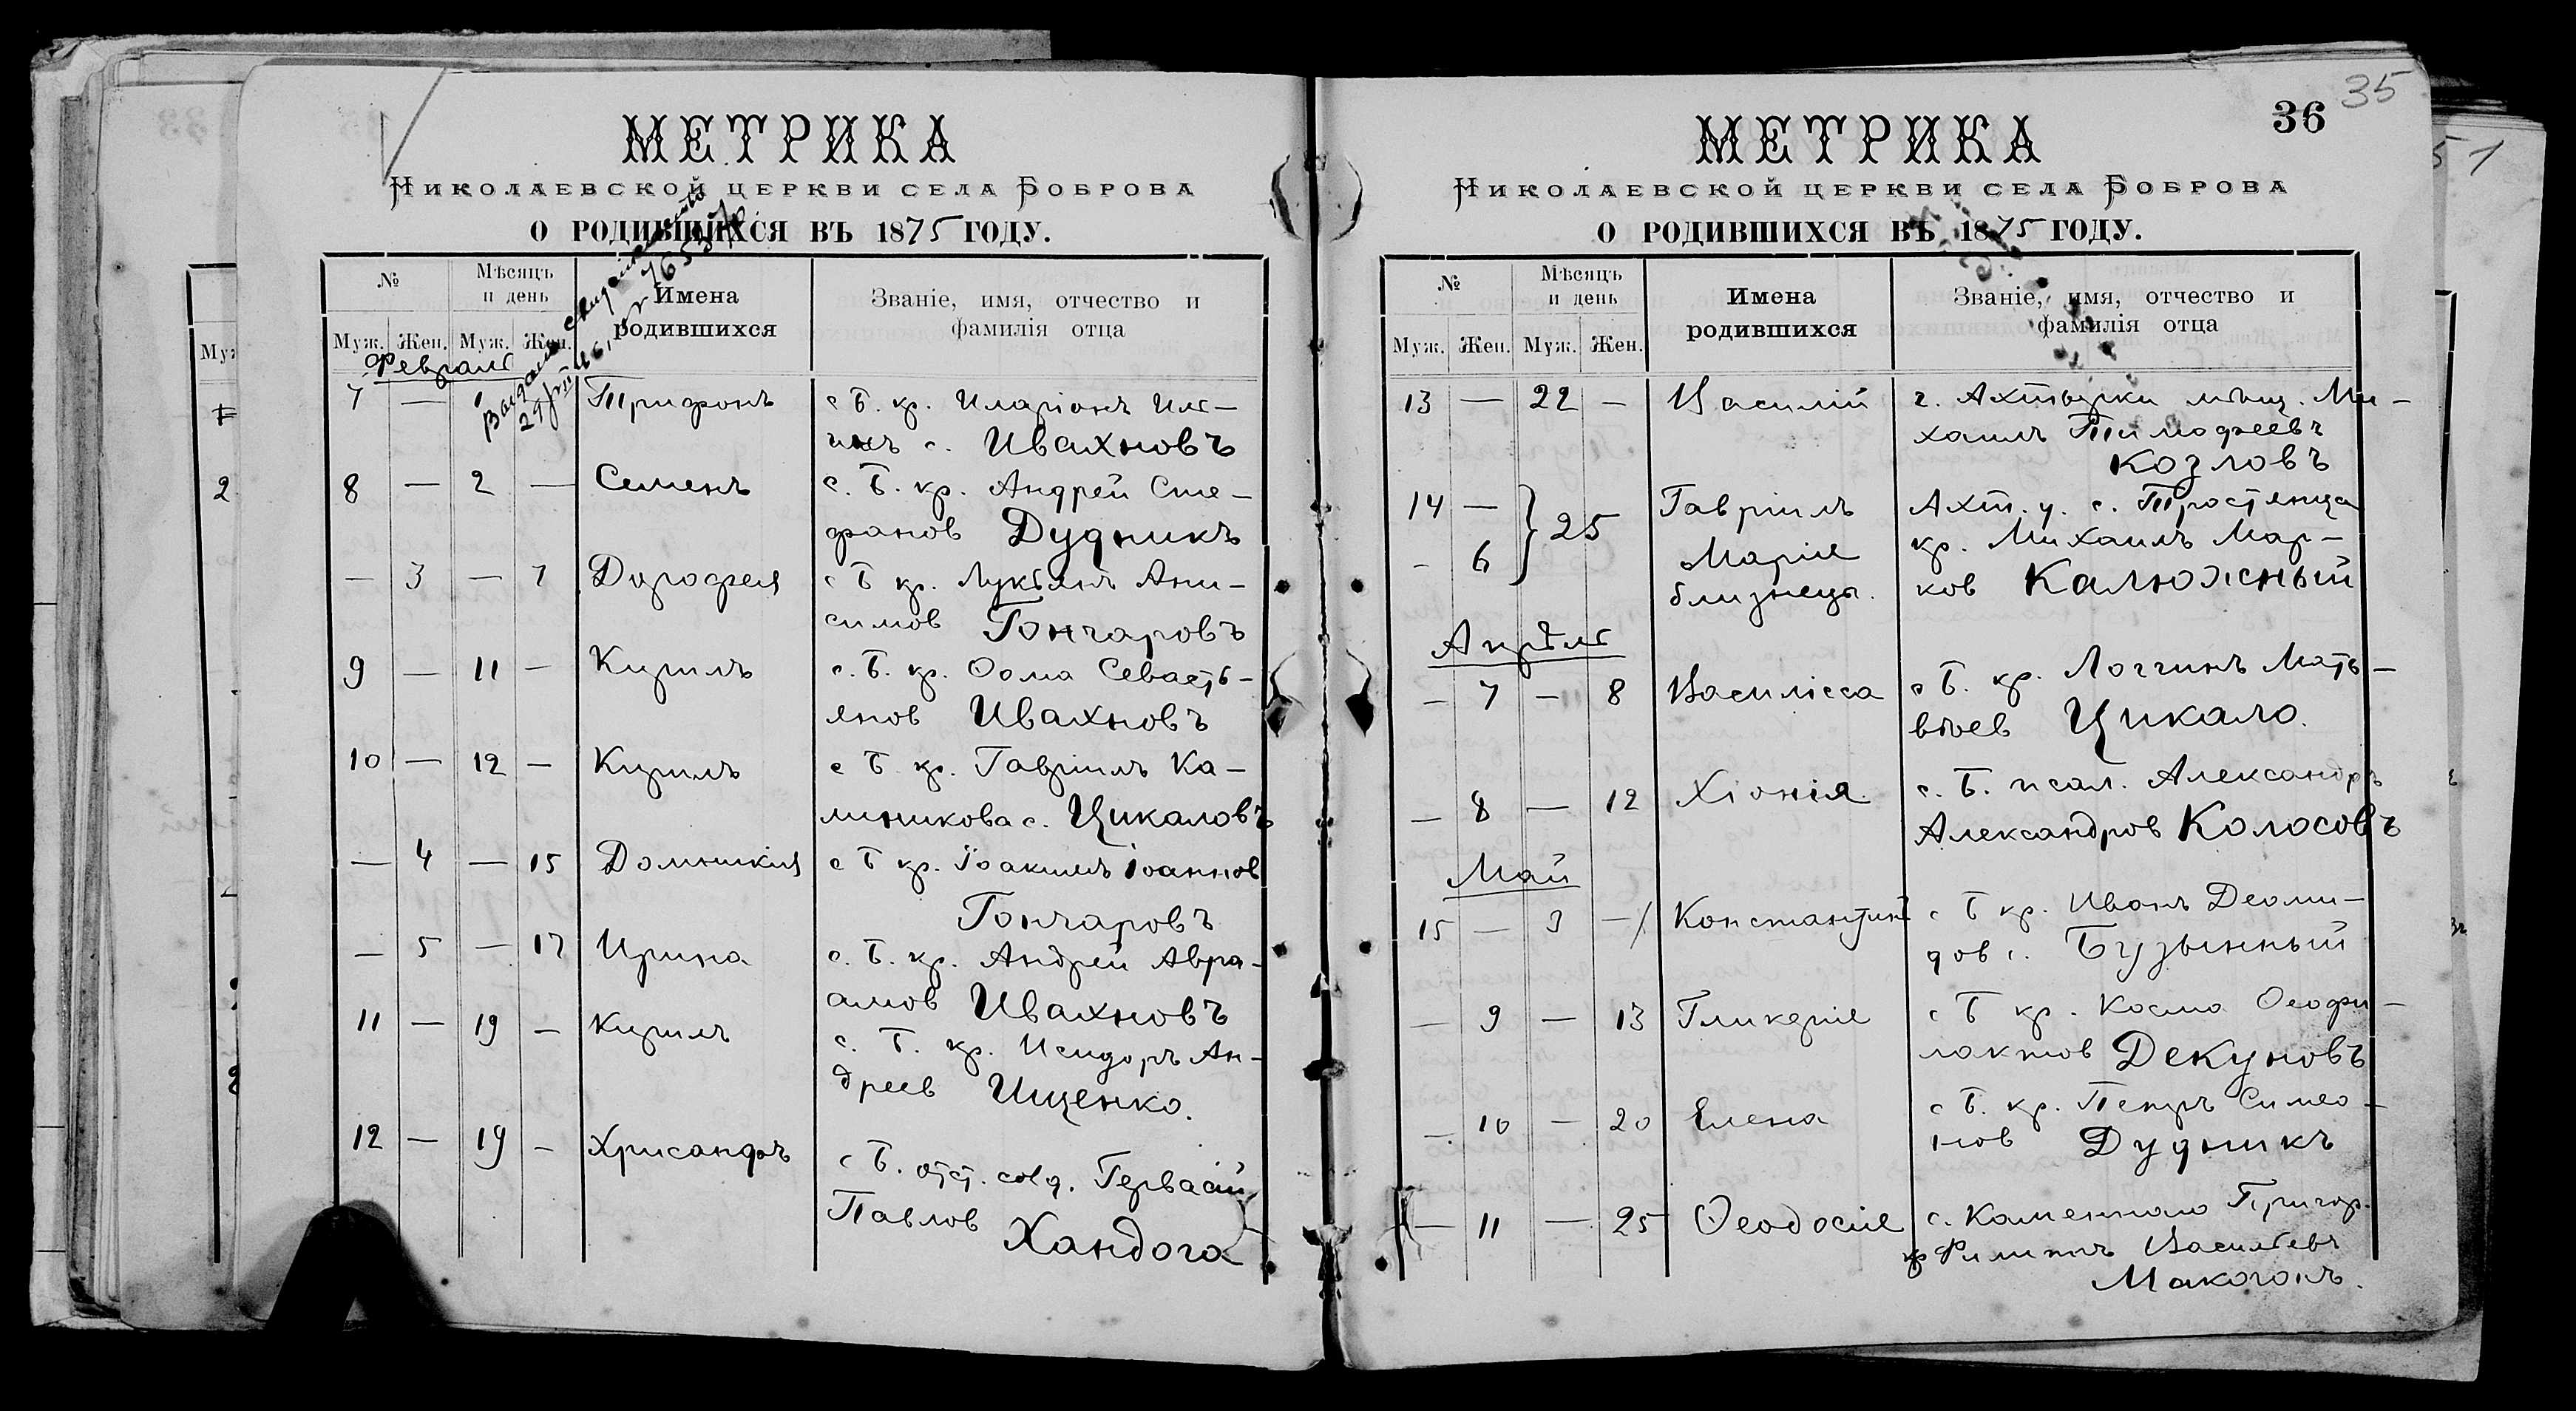 МЕТРИКА
НИКОЛАЕВСКОЙ ЦЕРКВИ СЕЛА БОБРОВА
О РОДИВШИХСЯ ВЪ 1875 ГОДУ.
№
Мѣсяцъ и день
Имена родившихся
Званіе, имя, отчество и фамилія отца
Муж. Жен. Муж. Жен.
Февраль
7 — 1 Трифонъ с Б. кр. Иларіонъ Иль-
инъ с. Ивахновъ
8 — 2 — Семенъ с. Б. кр. Андрей Сте-
фанов Дудникъ
— 3 — 7 Дорофея с Б кр. Лукьянъ Ани-
симов Гончаровъ
9 — 11 — Кирилъ с. Б. кр. Ѳома Севасть-
янов Ивахновъ
10 — 12 — Кирилъ с Б. кр. Гавріилъ Ка-
линикова с. Цикаловъ
— 4 — 15 Домникія с Б кр. Іоакимъ Іоаннов
Гончаровъ
— 5 — 17 Ирина с. Б. кр. Андрей Авра-
амов Ивахновъ
11 — 19 — Кирилъ с. Б. кр. Исидоръ Ан-
дреев Ищенко.
12 — 19 — Хрисанфъ с Б. отст. солд. Гервасій
Павлов
Хандога
35
36
МЕТРИКА
НИКОЛАЕВСКОЙ ЦЕРКВИ СЕЛА БОБРОВА
О РОДИВШИХСЯ ВЪ 1875 ГОДУ.
№
Мѣсяцъ и день
Имена родившихся
Званіе, имя, отчество и фамилія отца
Муж. Жен. Муж. Жен.
13 — 22 — Василій г. Ахтырки мѣщ. Ми-
хаилъ Тимофеевъ
Козловъ
14 — } 25 Гавріилъ Ахт. у. с. Тростянца
— 6 Марія кр. Михаилъ Мар-
близнецы. ков Калюжный
Апрѣль
— 7 — 8 Василісса с Б. кр. Логгинъ Мать-
вѣев Цикало.
— 8 — 12 Хіонія с. Б. псал. Александръ
Александров Колосовъ
Май
15 — 3 — Константинъ с Б кр. Иванъ Деоми-
дов с. Бузынный
— 9 — 13 Гликерія с Б кр. Косма Ѳеофи-
лактов Декуновъ
— 10 — 20 Елена с Б. кр. Петръ Симео-
нов Дудникъ
— 11 — 25 Ѳеодосія с. Каменнаго Пригор.
кр Филипъ Васильевъ
Макогонъ.